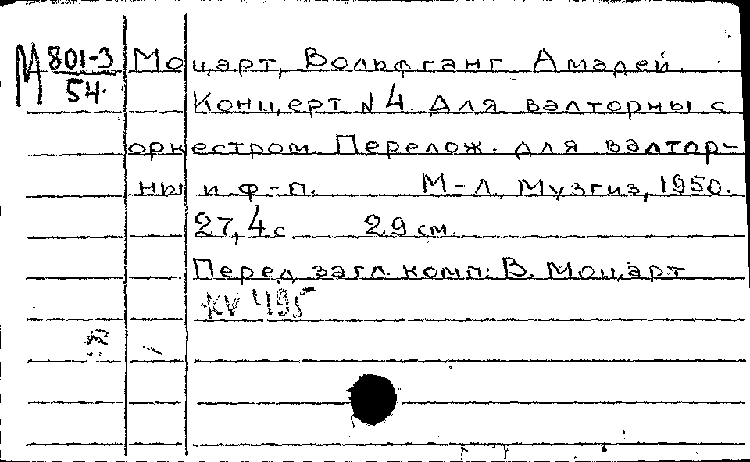 М 801-3
54.
Моцарт, Вольфганг Амадей.
Концерт №4 для валторны с
оркестром. Перелож. для валтор-
ны и ф-п. М-Л, Музгиз, 1950.
27, 4 с. 29 см.
Перед загл. комп: В. Моцарт
KV 495